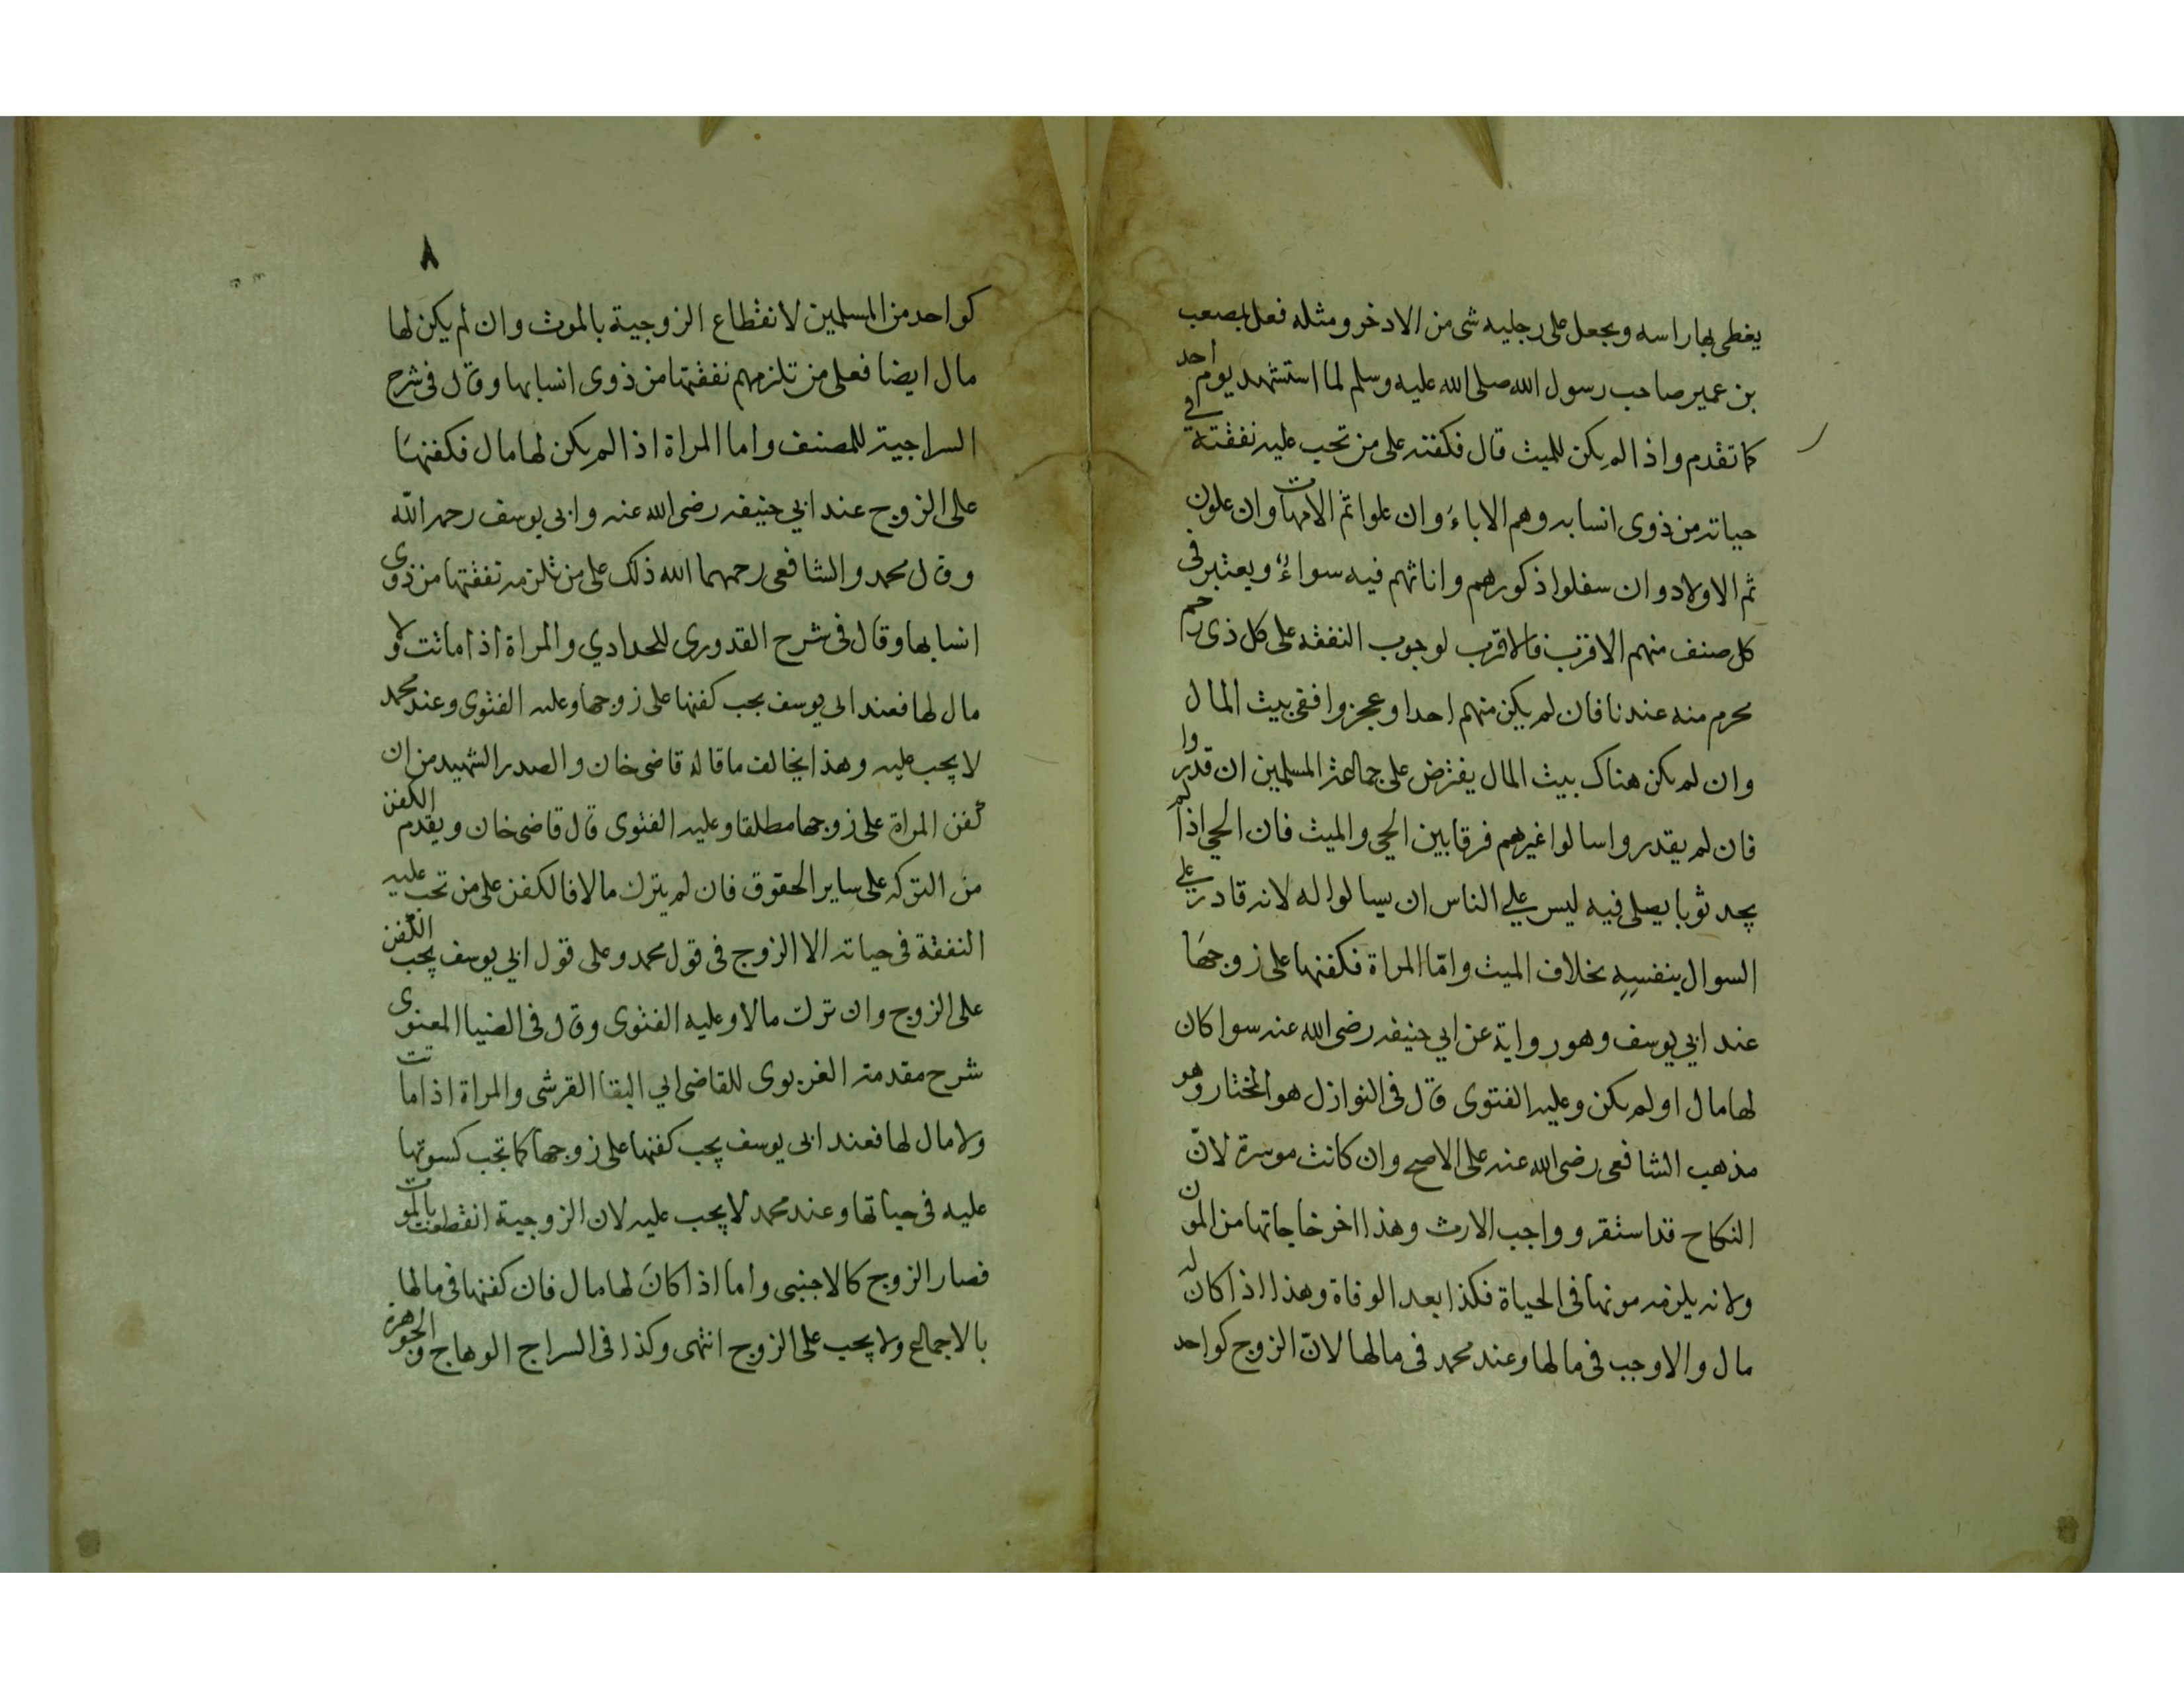 يغطى بها راسه ويجعل على رجليه شى من الادخر ومثله فعل بمصعب
بن عمير صاحب رسول الله صلى الله عليه وسلم لما استشهد يوم احد
كما تقدم واذا لم يكن للميت قال فكفنه على من تجب عليه نفقته في
حياته من ذوى انسابه وهم الاباء وان علوا ثم الامهات وان علون
ثم الاولاد وان سفلوا ذكورهم واناثهم فيه سواء ويعتبر فى
كل صنف منهم الاقرب فالاقرب لوجوب النفقه على كل ذى رحم
محرم منه عندنا فان لم يكن منهم احد او عجزوا ففى بيت المال
وان لم يكن هناك بيت المال يفترض على جماعة المسلمين ان قدروا
فان لم يقدروا سالوا غيرهم فرقا بين الحي والميت فان الحي اذا لم
يجد ثوبا يصلى فيه ليس علي الناس ان يسالوا له لانه قادر علي
السوال بنفسه بخلاف الميت وامّا المراة فكفنها على زوجها
عند ابي يوسف وهو رواية عن ابي حنيفه رضى الله عنه سوا كان
لها مال او لم يكن وعليه الفتوى قال فى النوازل هو المختار وهو
مذهب الشافعى رضى الله عنه على الاصح وان كانت موسرة لانّ
النكاح قد استقر وواجب الارث وهذا اخر حاجاتها من المون
ولانه يلزمه مونها فى الحياة فكذا بعد الوفاة وهذا اذا كان له
مال والاوجب فى مالها وعند محمد فى مالها لانّ الزوج كواحد
٨
كواحد من المسلمين لانقطاع الزوجية بالموت وان لم يكن لها
مال ايضا فعلى من تلزمهم نفقتها من ذوى انسابها وقال فى شرح
السراجية للمصنف واما المراة اذا لم يكن لها مال فكفنها
على الزوج عند ابي حنيفه رضى الله عنه وابى يوسف رحمه اللّه
وقال محمد والشافعى رحمهما الله ذلك على من تلزمه نفقتها من ذوى
انسابها وقال فى شرح القدورى للحدادي والمراة اذا ماتت ولا
مال لها فعند ابى يوسف يجب كفنها على زوجها وعليه الفتوى وعند محمد
لا يجب عليه وهذا يخالف ما قاله قاضى خان والصدر الشهيد من ان
كفن المراة على زوجها مطلقا وعليه الفتوى قال قاضى خان ويقدم الكفن
من التركه على ساير الحقوق فان لم يترك مالا فالكفن على من تجب عليه
النفقة فى حياته الا الزوج فى قول محمد وعلى قول ابي يوسف يجب الكفن
على الزوج وان ترك مالا وعليه الفتوى وقال فى الضيا المعنوى
شرح مقدمة الغزنوى للقاضى ابي البقا القرشى والمراة اذا ماتت
ولا مال لها فعند ابى يوسف يجب كفنها على زوجها كما تجب كسوتها
عليه فى حياتها وعند محمد لا يجب عليه لان الزوجية انقطعت بالموت
فصار الزوج كالاجنبى واما اذا كان لها مال فان كفنها فى مالها
بالاجماع ولا يجب على الزوج انتهى وكذا فى السراج الوهاج والجوهرة